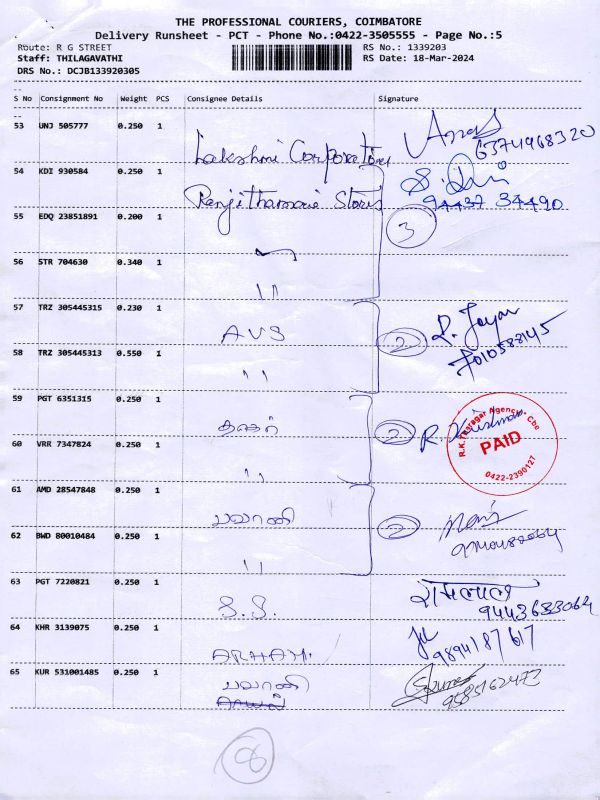 THE PROFESSIONAL COURIERS, COIMBATORE
Delivery Runsheet - PCT - Phone No.:0422-3505555 - Page No.:5
Route: R G STREET RS No.: 1339203
Staff: THILAGAVATHI RS Date: 18-Mar-2024
DRS No.: DCJB133920305
S No Consignment No Weight PCS Consignee Details Signature
53 UNJ 505777 0.250 1 Lakshmi Corporation 6374968320
54 KDI 930584 0.250 1 Ranjithamani Stores 94437 34490
55 EDQ 23851891 0.200 1 3
56 STR 704630 0.340 1 11
57 TRZ 305445315 0.230 1 AVS 2 R. Jayan 7010588145
58 TRZ 305445313 0.550 1 11
59 PGT 6351315 0.250 1 2 R. Krishnan
R.K.Tearagar Agency, Cbe
PAID
0422-2390127
60 VRR 7347824 0.250 1 11
61 AMD 28547848 0.250 1 பவானி 2
62 BWD 80010484 0.250 1 11
63 PGT 7220821 0.250 1 S.S. 9443633064
64 KHR 3139075 0.250 1 ARHAM. 9894187617
65 KUR 531001485 0.250 1 பவானி 9585162473
8